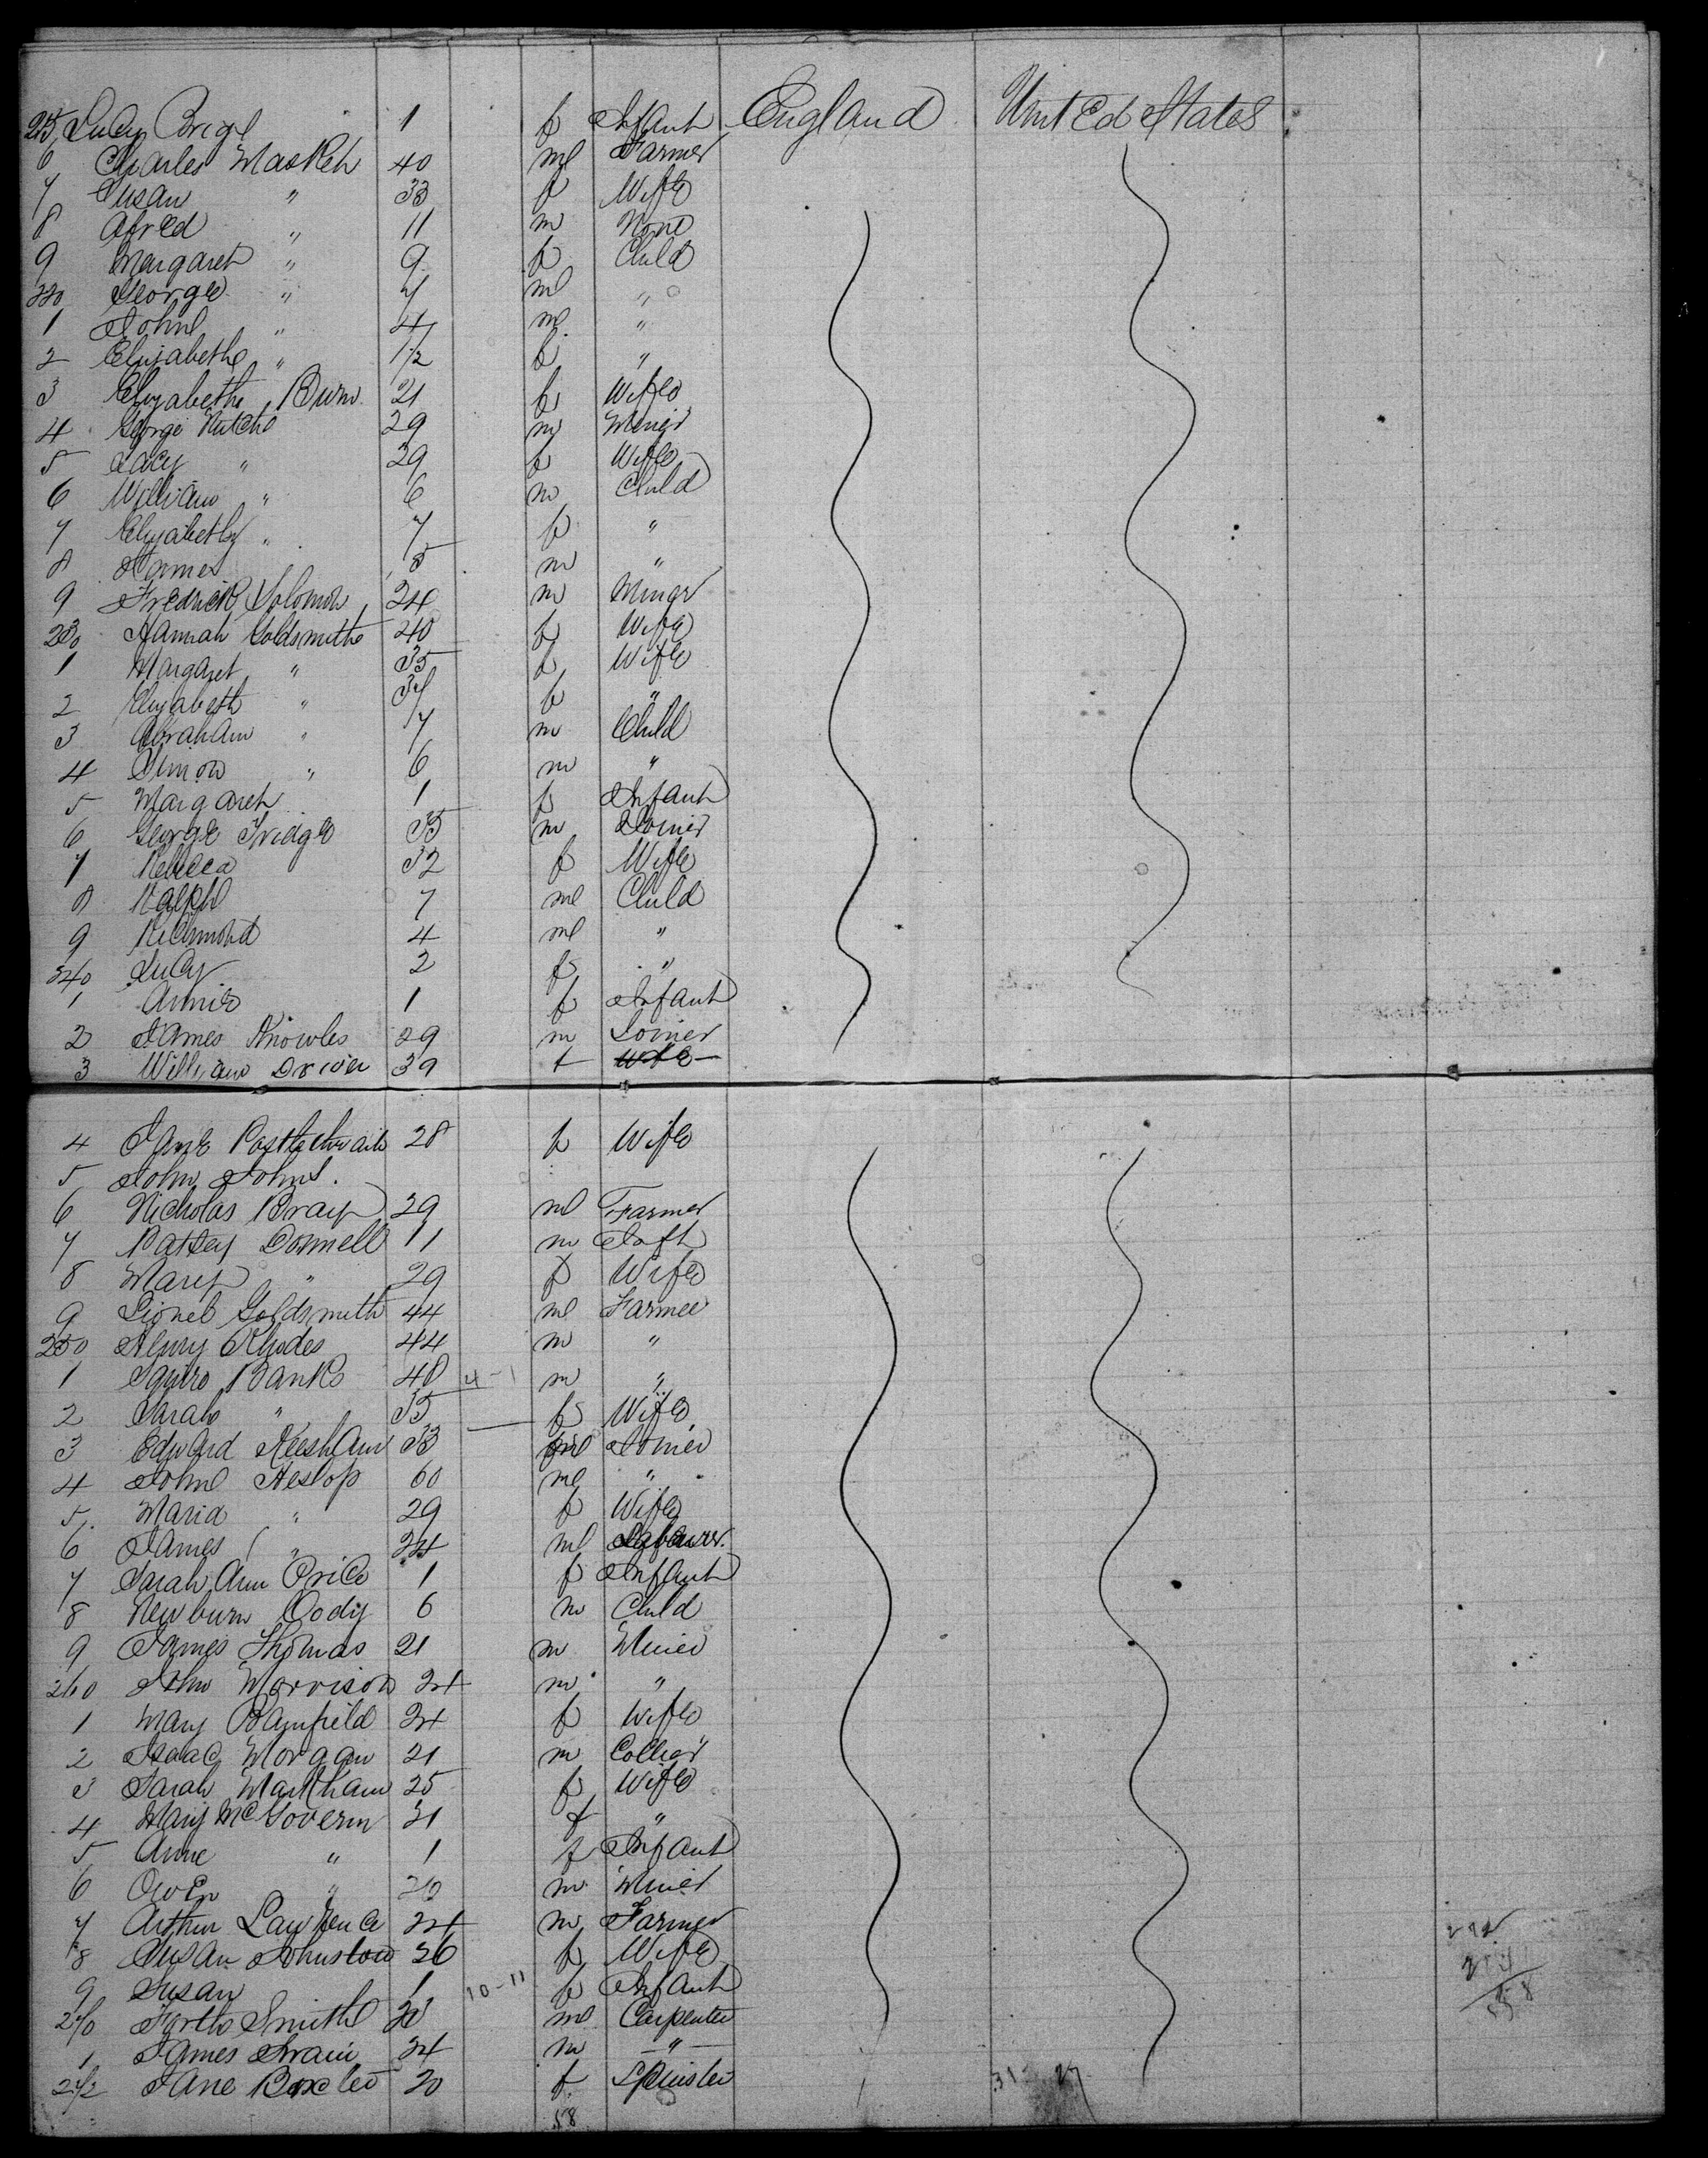 215 Lucy Brigl 1 f Infant England United States
6 Charles Maskell 40 ml Farmer
7 Susan " 33 f Wife
8 Afred " 11 m None
9 Margaret " 9 f Child
220 George " 7 ml "
1 John " 4 ml "
2 Elizabeth " 1/2 f "
3 Elizabeth Burn 21 f Wife
4 George 29 m Miner
5 Lucy " 29 f Wife
6 William " 6 m Child
7 Elizabeth " 7 f "
8 James 5 m "
9 Fredrick Solomon 24 m Miner
230 Hannah Goldsmith 40 f Wife
1 Margaret " 35 f Wife
2 Elizabeth " 37 f "
3 Abraham " 7 m Child
4 Simon " 6 m "
5 Margaret 1 f Infant
6 George Fridge 35 m Joiner
7 Rebecca 32 f Wife
8 Ralph 7 ml Child
9 Richmond 4 ml "
240 Lucy 2 f "
1 Annie 1 f Infant
2 James Knowles 29 m Joiner
3 William Driver 39 f Wife
4 Jane Postlethwaite 28 f Wife
5 John Johns.
6 Nicholas Bray 29 ml Farmer
7 Patsey Donnell 11 m
8 Mary " 29 f Wife
9 Lionel Goldsmith 44 ml Farmer
250 Henry Rhodes 44 m "
1 Squire Banks 48 4-1 m "
2 Sarah " 35 f Wife
3 Edward 33 ml Joiner
4 John Heslop 60 ml "
5 Maria " 29 f Wife
6 James " 24 ml Labourer.
7 Sarah Ann Price 1 f Infant
8 Newburn Dody 6 m Child
9 James Thomas 21 m Miner
260 John Morrison 24 m "
1 Mary Bamfield 24 f Wife
2 Isaac Morgan 21 m Collier
3 Sarah Markham 25 f Wife
4 Mary McGovern 21 f "
5 Anne " 1 f Infant
6 Owen " 20 m Miner
7 Arthur Lawrence 24 m Farmer
8 Susan Johnston 26 f Wife
9 Susan 1 10-11 f Infant
270 Smith 20 ml Carpenter
1 James Swain 24 m "
272 Jane 20 f Spinster
58